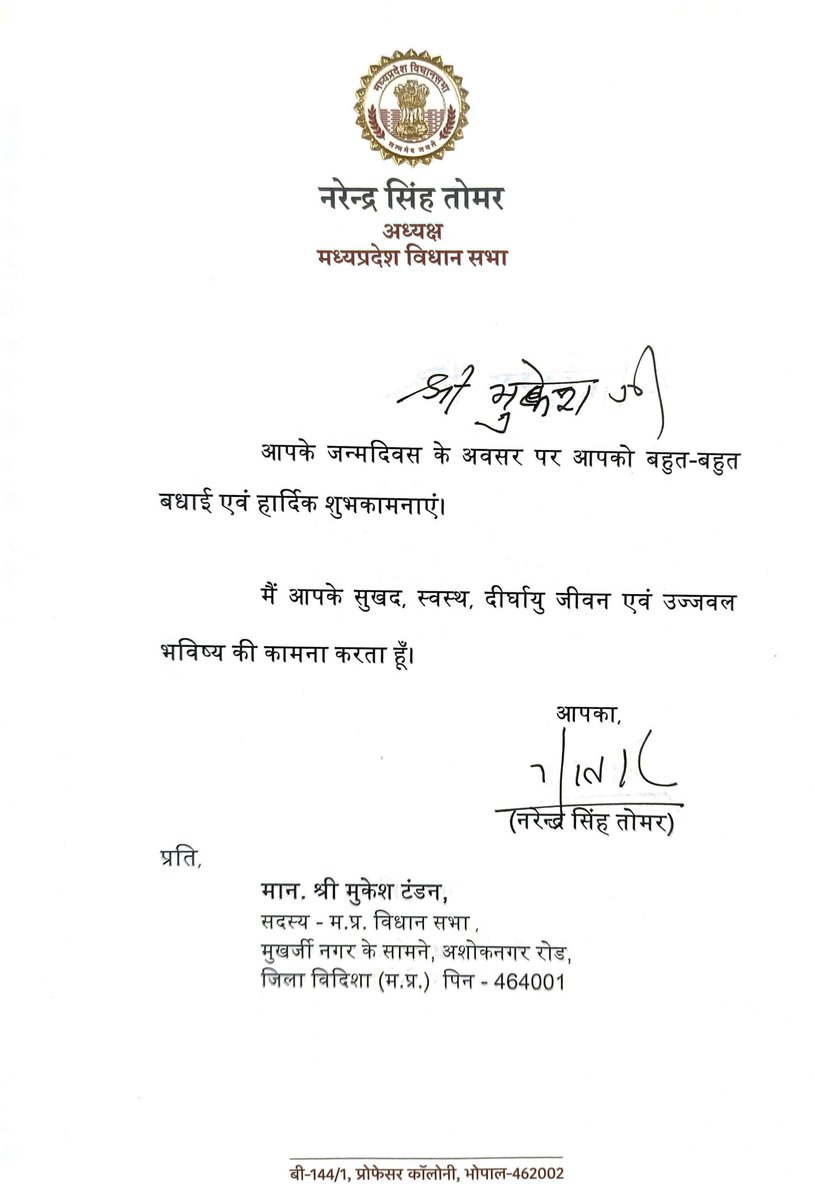 मध्यप्रदेश विधानसभा
सत्यमेव जयते
नरेन्द्र सिंह तोमर
अध्यक्ष
मध्यप्रदेश विधान सभा
श्री मुकेश जी
आपके जन्मदिवस के अवसर पर आपको बहुत-बहुत
बधाई एवं हार्दिक शुभकामनाएं।
मैं आपके सुखद, स्वस्थ, दीर्घायु जीवन एवं उज्जवल
भविष्य की कामना करता हूँ।
आपका,
(नरेन्द्र सिंह तोमर)
प्रति,
मान. श्री मुकेश टंडन,
सदस्य - म.प्र. विधान सभा,
मुखर्जी नगर के सामने, अशोकनगर रोड,
जिला विदिशा (म.प्र.) पिन - 464001
बी-144/1, प्रोफेसर कॉलोनी, भोपाल-462002